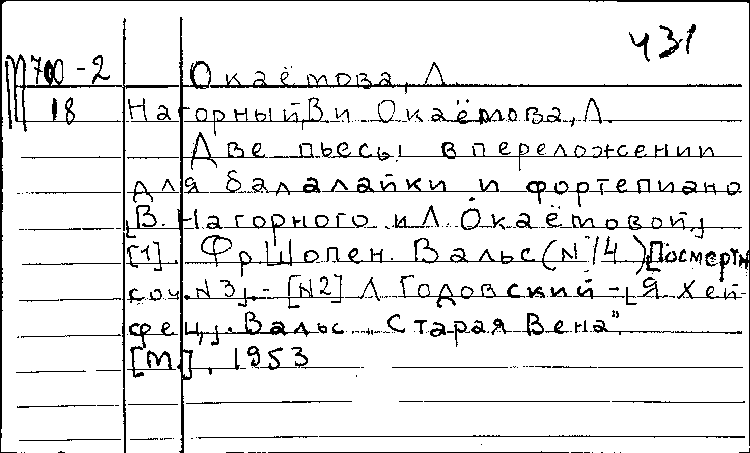 ч31
М700-2 Окаётова, Л.
18 Нагорный, В и Окаёмова, Л.
Две пьесы в переложении
для балалайки и фортепиано
[В. Нагорного и Л. Окаёмовой]
[1]. Фр. Шопен. Вальс (№ 14) [Посмертн
соч. №3]. - [№2] Л Годовский - [Я Хей-
фец]. Вальс „Старая Вена".
[М.], 1953